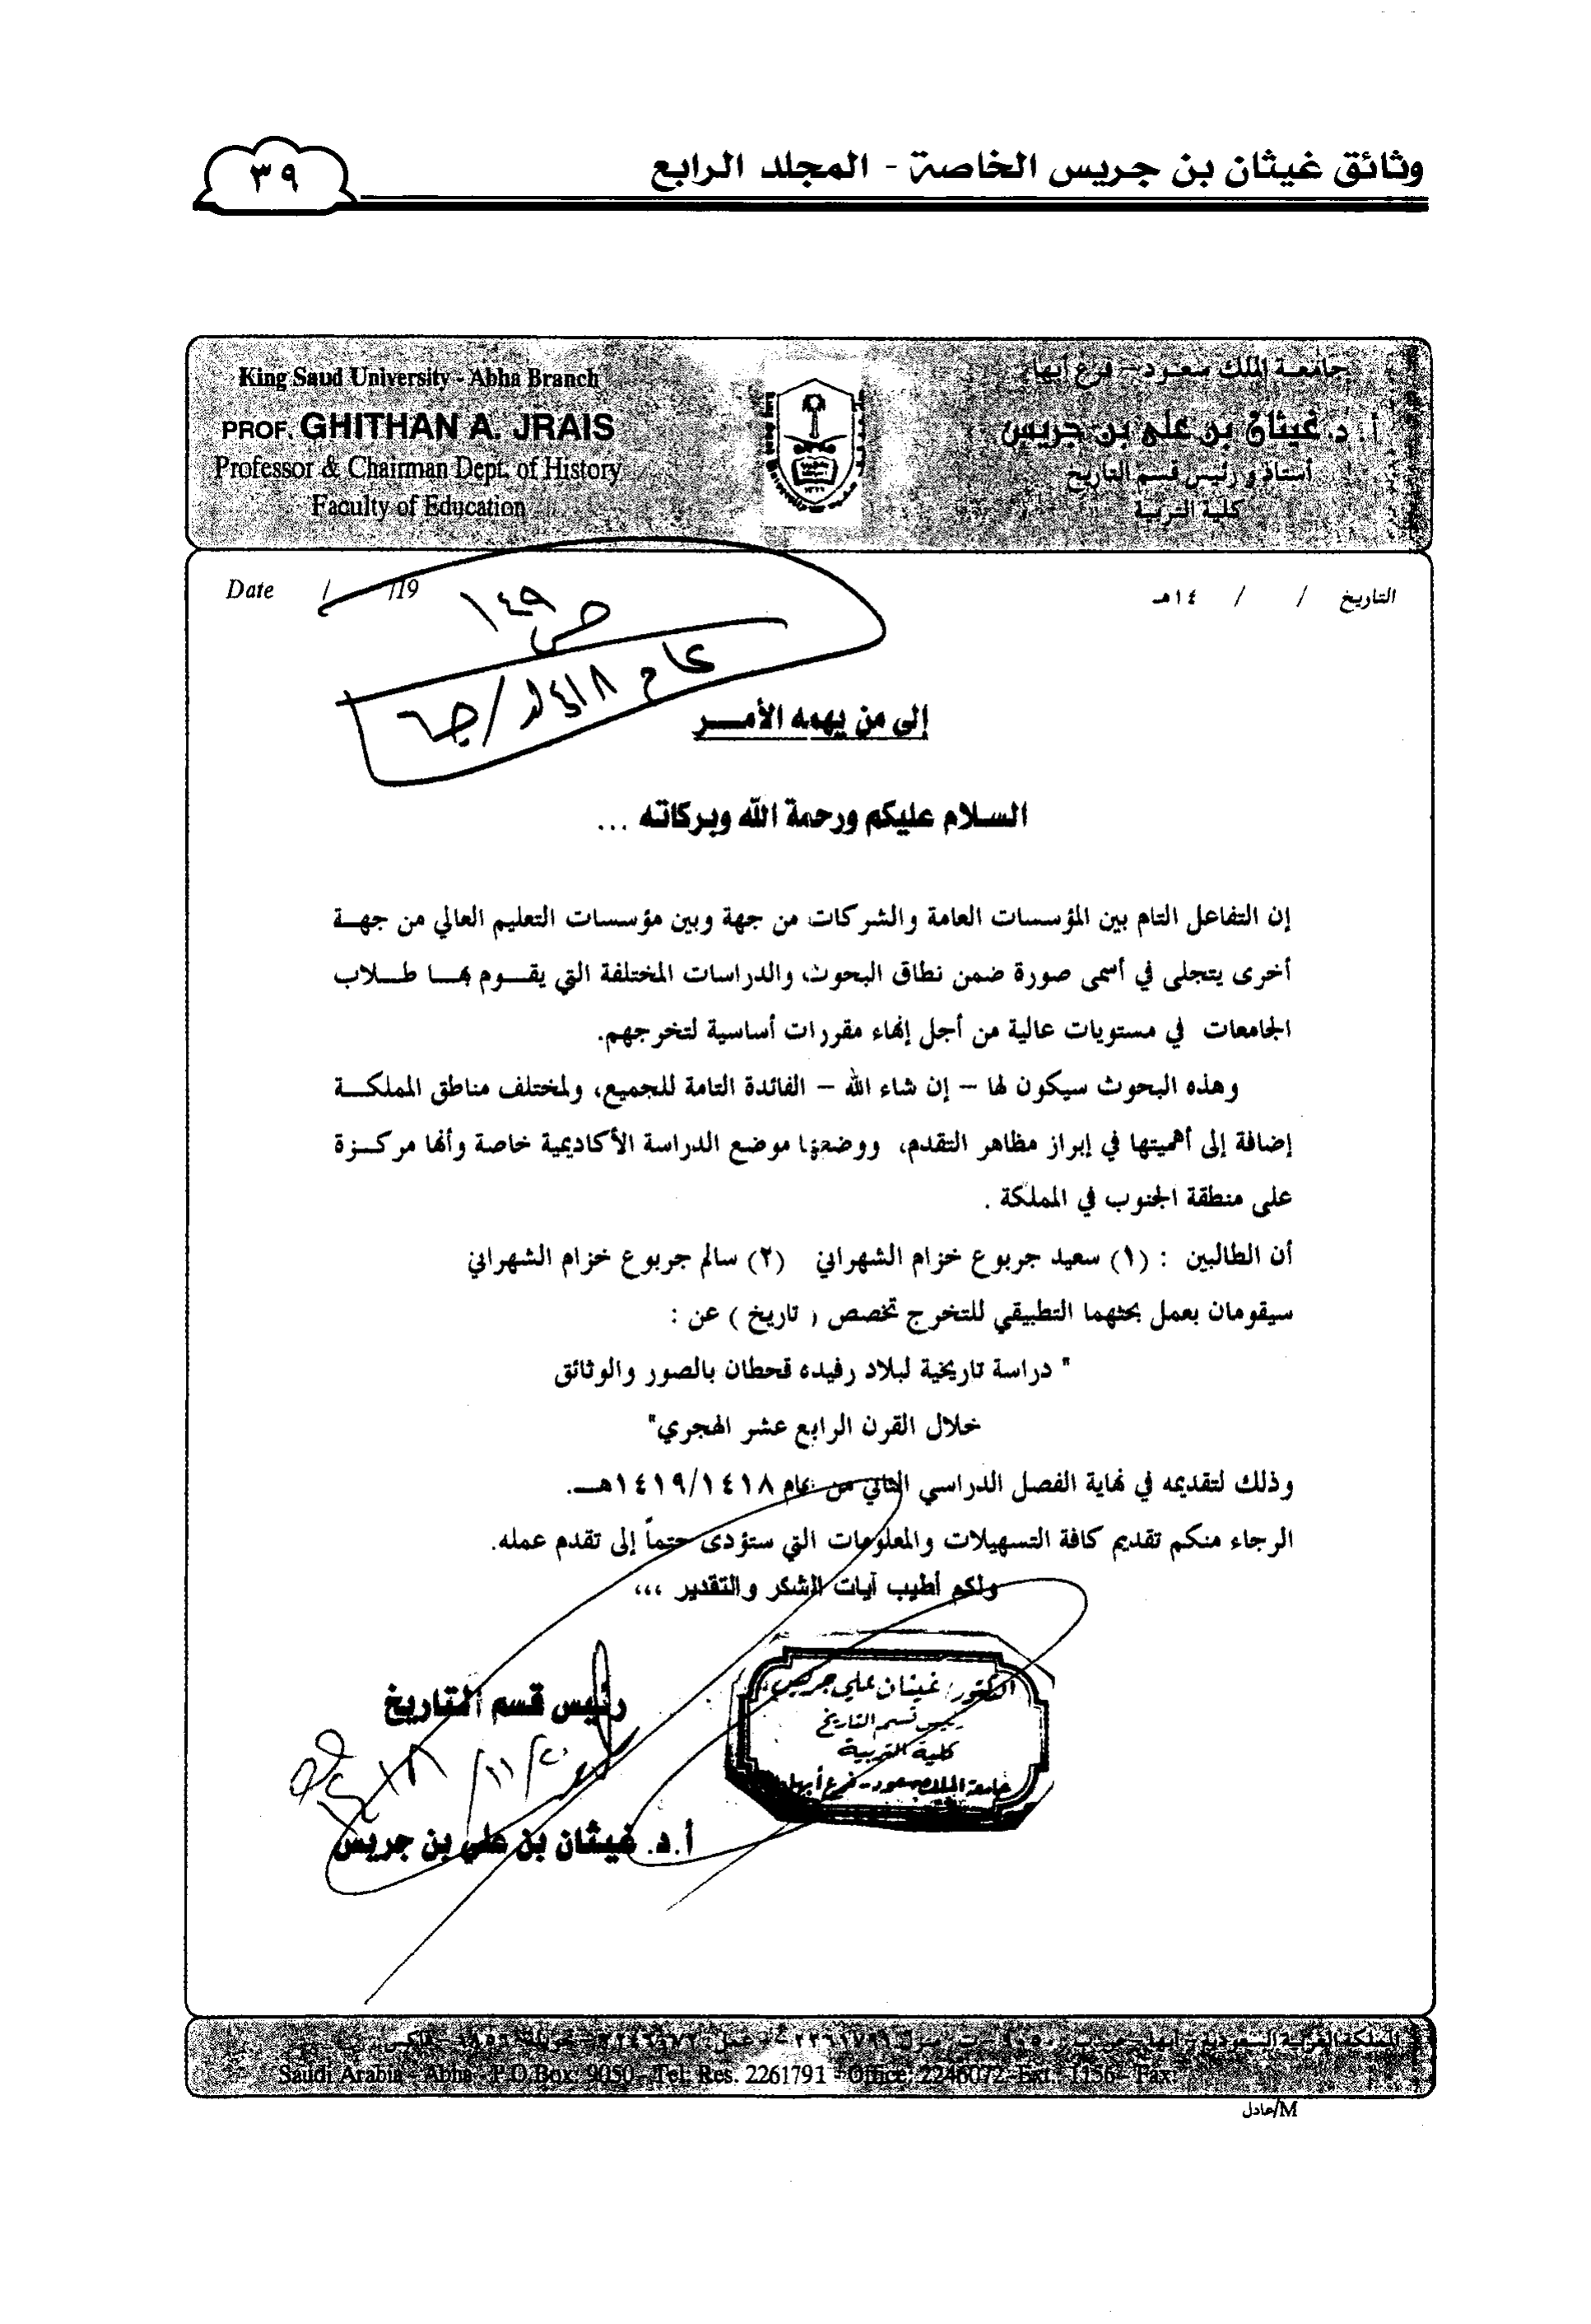 وثائق غيثان بن جريس الخاصة - المجلد الرابع
٣٩
King Saud University - Abha Branch
PROF. GHITHAN A. JRAIS
Professor & Chairman Dept. of History
Faculty of Education
جامعة الملك سعود - فرع أبها
أ. د. غيثان بن علي بن جريس
أستاذ ورئيس قسم التاريخ
كلية التربية
Date / /19
التاريخ / / ١٤هـ
ص ١٤٩
عام ١٤١٨
إلى من يهمه الأمـــر
السلام عليكم ورحمة الله وبركاته ...
إن التفاعل التام بين المؤسسات العامة والشركات من جهة وبين مؤسسات التعليم العالي من جهـة
أخرى يتجلى في أسمى صورة ضمن نطاق البحوث والدراسات المختلفة التي يقـوم بهـا طـلاب
الجامعات في مستويات عالية من أجل إنهاء مقررات أساسية لتخرجهم.
وهذه البحوث سيكون لها – إن شاء الله – الفائدة التامة للجميع، ولمختلف مناطق المملكـة
إضافة إلى أهميتها في إبراز مظاهر التقدم، ووضعها موضع الدراسة الأكاديمية خاصة وأنها مركـزة
على منطقة الجنوب في المملكة .
أن الطالبين : (١) سعيد جربوع خزام الشهراني (٢) سالم جربوع خزام الشهراني
سيقومان بعمل بحثهما التطبيقي للتخرج تخصص ( تاريخ ) عن :
" دراسة تاريخية لبلاد رفيده قحطان بالصور والوثائق
خلال القرن الرابع عشر الهجري"
وذلك لتقديمه في نهاية الفصل الدراسي الثاني من عام ١٤١٩/١٤١٨هـ.
الرجاء منكم تقديم كافة التسهيلات والمعلومات التي ستؤدى حتماً إلى تقدم عمله.
ولكم أطيب آيات الشكر والتقدير ،،،
رئيس قسم التاريخ
الدكتور/ غيثان علي جريس
رئيس قسم التاريخ
كلية التربية
جامعة الملك سعود - فرع أبها
أ.د. غيثان بن علي بن جريس
المملكة العربية السعودية - أبها
Saudi Arabia - Abha - P.O.Box: 9050 - Tel: Res. 2261791 - Office: 2246072 - Ext.: 1156 - Fax:
M/عادل